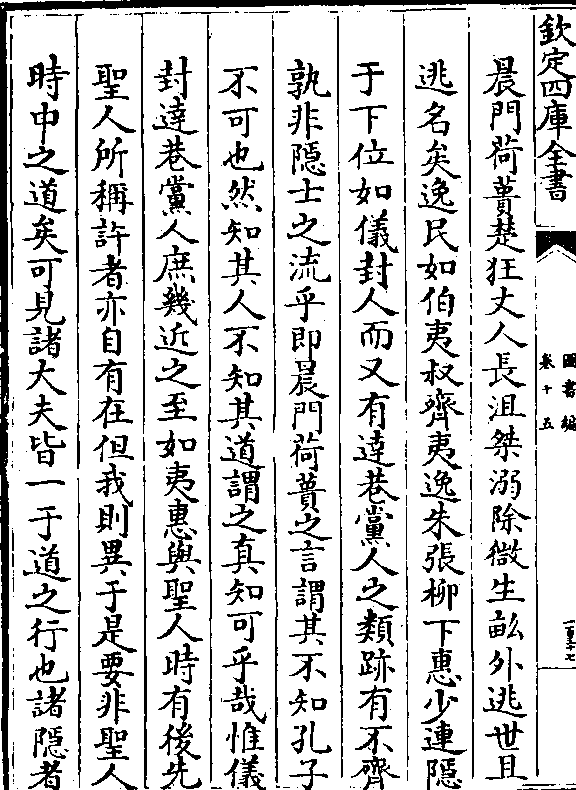 欽定四庫全書
圖書編
卷十五
晨門荷蕢楚狂丈人長沮桀溺除微生畝外逃世且
逃名矣逸民如伯夷叔齊夷逸朱張柳下惠少連隱
于下位如儀封人而又有達巷黨人之類跡有不齊
孰非隱士之流乎即晨門荷蕢之言謂其不知孔子
不可也然知其人不知其道謂之真知可乎哉惟儀
封達巷黨人庶幾近之至如夷惠與聖人時有後先
聖人所稱許者亦自有在但我則異于是要非聖人
時中之道矣可見諸大夫皆一于道之行也諸隱者